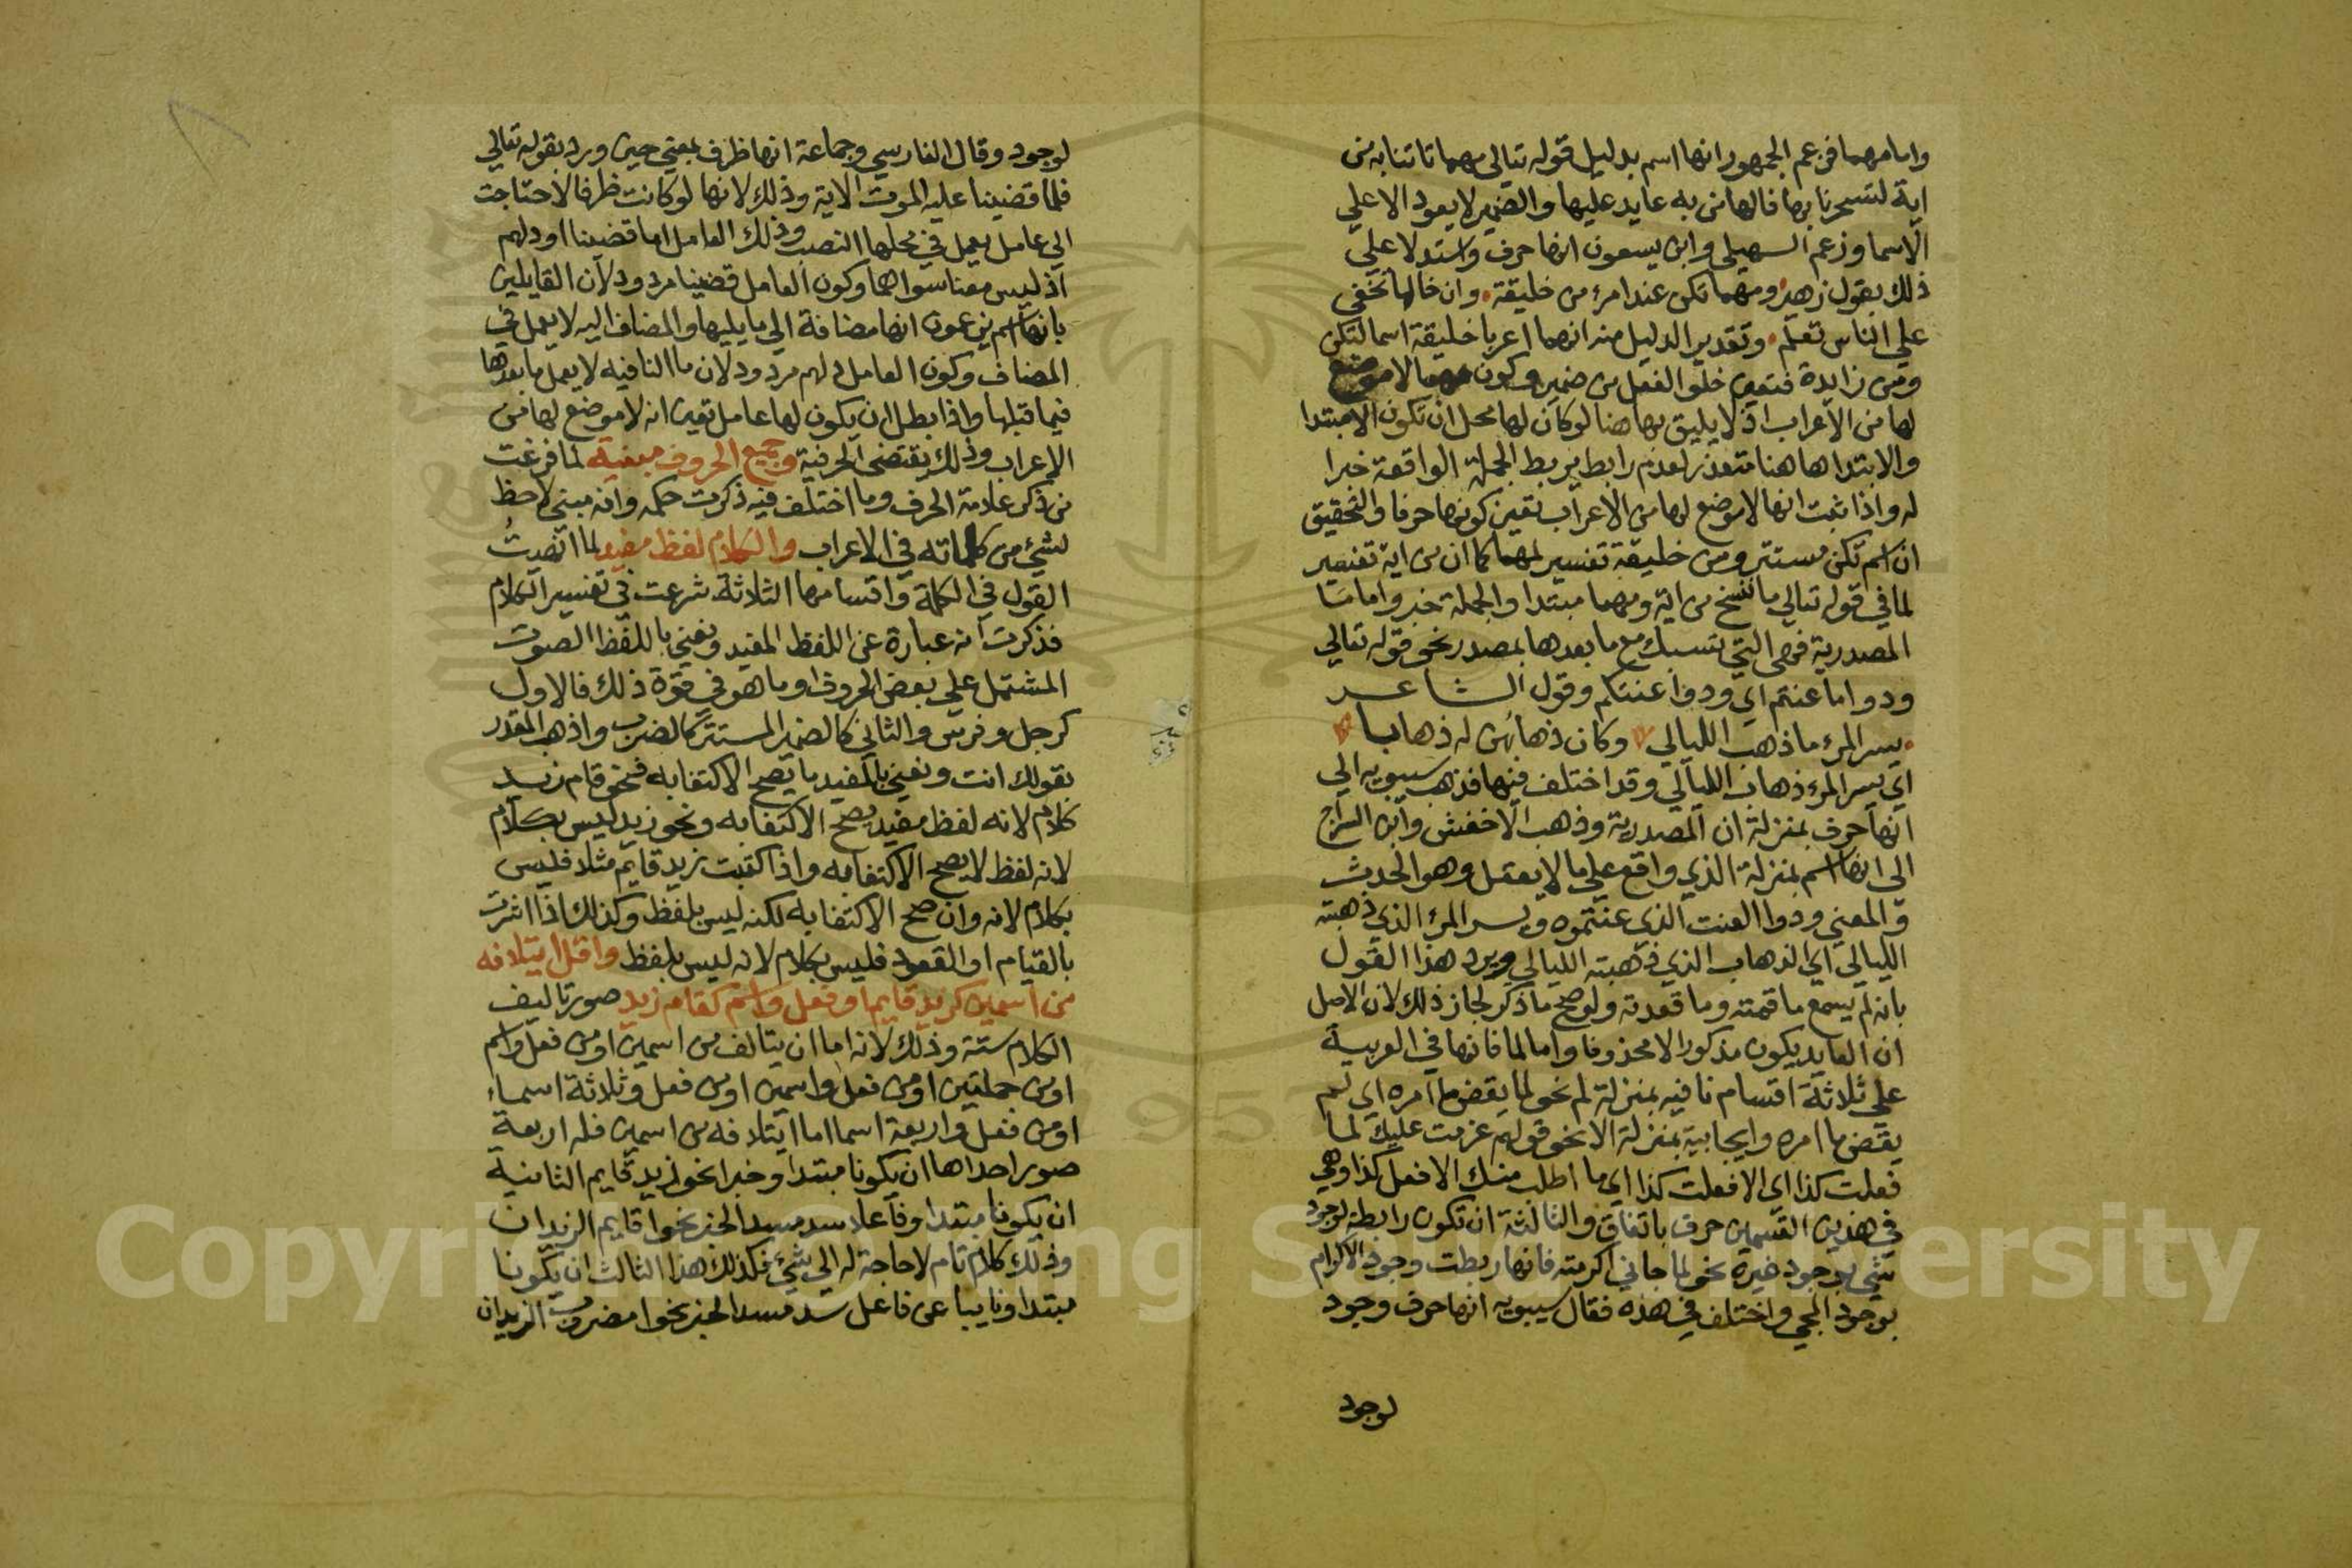 واما مهما فزعم الجمهور انها اسم بدليل قوله تعالى مهما تاتنا به من
اية لتسحرنا بها فالهامن به عايد عليها والضمير لا يعود الا علي
الاسما وزعم السهيلي وابن يسعون انها حرف واستدلا علي
ذلك بقول زهير ومهما تكن عند امرء من خليقة وان خالها تخفي
علي الناس تعلم وتقدير الدليل منه انهما اعربا خليقة اسما لتكن
ومن زايدة فتعين خلو الفعل من ضمير وكون مهما لا موضع
لها من الاعراب اذ لا يليق بها هنا لو كان لها محل ان تكون الا مبتدا
والابتدا ها هنا متعذر لعدم رابط يربط الجملة الواقعة خبرا
له واذا ثبت انها لا موضع لها من الاعراب تعين كونها حرفا والتحقيق
ان اسم تكن مستتر ومن خليقة تفسير لمهما كما ان من اية تفسير
لما في قوله تعالي ما ننسخ من اية ومهما مبتدا والجملة خبر واما ما
المصدرية فهى التي تسبك مع ما بعدها بمصدر نحو قوله تعالي
ودوا ما عنتم اي ودوا عنتكم وقول الشاعر
يسر المرء ما ذهب الليالي وكان ذهابهن له ذهابا
اي يسر المرء ذهاب الليالي وقد اختلف فيها فذهب سيبويه الي
انها حرف بمنزلة ان المصدرية وذهب الاخفش وابن السراج
الى انها اسم بمنزلة الذي واقع علي ما لا يعقل وهو الحدث
والمعني ودوا العنت الذي عنتموه ويسر المرء الذي ذهبته
الليالي اي الذهاب الذي ذهبته الليالي ويرد هذا القول
بانه لم يسمع ما قمته وما قعدته ولو صح ما ذكر لجاز ذلك لان الاصل
ان العايد يكون مذكورا لا محذوفا واما لما فانها في العربية
علي ثلاثة اقسام نافيه بمنزلة لم نحو لما يقض ما امره اي لم
يقض ما امره وايجابية بمنزلة الا نحو قولهم عزمت عليك لما
فعلت كذا اي الا فعلت كذا اي ما اطلب منك الا فعل كذا وهي
في هذين القسمين حرف باتفاق والثالثة ان تكون رابطة لوجود
شي بوجود غيره نحو لما جاني اكرمته فانها ربطت وجود الاكرام
بوجود المجي واختلف في هذه فقال سيبويه انها حرف وجود
لوجود
لوجود وقال الفارسي وجماعة انها ظرف بمعني حين ورد بقوله تعالي
فلما قضينا عليه الموت الاية وذلك لانها لو كانت ظرفا لاحتاجت
الي عامل يعمل في محلها النصب وذلك العامل اما قضينا او دلهم
اذ ليس معنا سواهما وكون العامل قضينا مردود لان القايلين
بانها اسم يزعمون انها مضافة الي ما يليها والمضاف اليه لا يعمل في
المضاف وكون العامل دلهم مردود لان ما النافيه لا يعمل ما بعدها
فيما قبلها واذا بطل ان يكون لها عامل تعين انه لا موضع لها من
الاعراب وذلك يقتضى الحرفية وجميع الحروف مبنية لما فرغت
من ذكر علامة الحرف وما اختلف فيه ذكرت حكمه وانه مبني لا حظ
لشئ من كلماته في الاعراب والكلام لفظ مفيد لما انهيت
القول في الكلمة واقسامها الثلاثة شرعت في تفسير الكلام
فذكرت انه عبارة عن اللفظ المفيد ونعني باللفظ الصوت
المشتمل علي بعض الحروف او ما هو في قوة ذلك فالاول
كرجل وفرس والثاني كالضمير المستتر كالضرب واذهب المقدر
بقولك انت ونعني بالمفيد ما يصح الاكتفا به فنحو قام زيد
كلام لانه لفظ مفيد يصح الاكتفا به ونحو زيد ليس بكلام
لانه لفظ لا يصح الاكتفا به واذا كتبت زيد قايم مثلا فليس
بكلام لانه وان صح الاكتفا به لكنه ليس بلفظ وكذلك اذا اشرت
بالقيام او القعود فليس بكلام لانه ليس بلفظ واقل ايتلافه
من اسمين كزيد قايم او فعل واسم كقام زيد صور تاليف
الكلام ستة وذلك لانه اما ان يتالف من اسمين او من فعل واسم
او من جملتين او من فعل واسمين او من فعل وثلاثة اسماء
او من فعل واربعة اسما اما ايتلافه من اسمين فله اربعة
صور احداها ان يكونا مبتدا وخبرا نحو زيد قايم الثانية
ان يكونا مبتدا وفاعلا سد مسد الخبر نحو اقايم الزيدان
وذلك كلام تام لا حاجة له الي شئ فكذلك هذا الثالث ان يكونا
مبتدا ونايبا عن فاعل سد مسد الخبر نحو امضروب الزيدان
Copyright © King Saud University